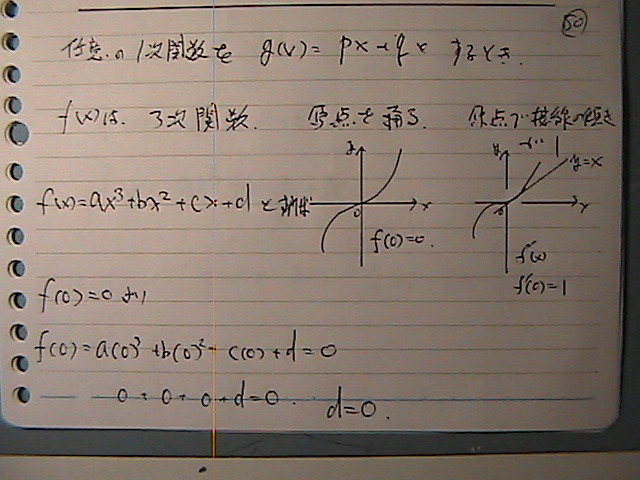 50
任意の1次関数を g(x) = px+qと するとき.
f(x)は、3次関数. 原点を通る. 原点で接線の傾き
が 1
f(x)=ax³+bx²+cx+d と
y
x
0
f(0)=0.
y
y=x
x
0
f'(x)
f'(0)=1
f(0)=0より
f(0)=a(0)³+b(0)²+c(0)+d=0
0+0+0+d=0. d=0.